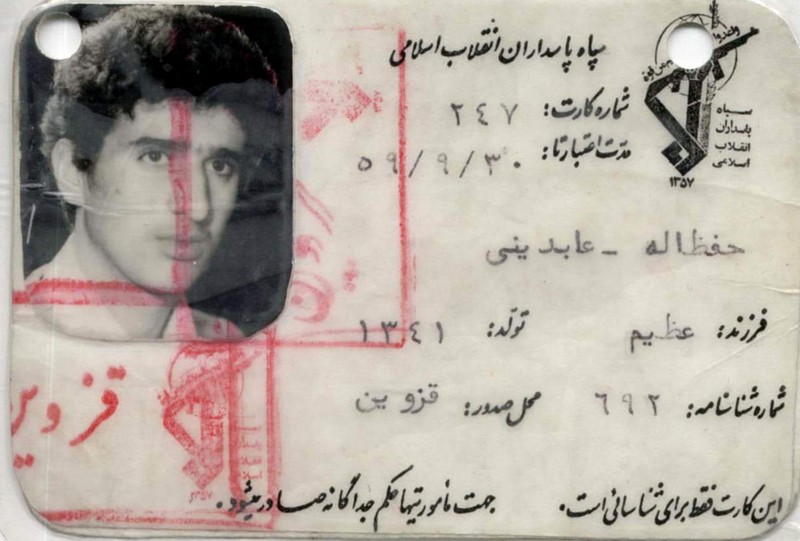 سپاه پاسداران انقلاب اسلامی
شماره کارت: ۲٤۷
مدت اعتبار تا: ۵۹/۹/۳۰
سپاه
پاسداران
انقلاب
اسلامی
۱۳۵۷
حفظ اله - عابدینی
فرزند: عظیم تولد: ۱۳٤۱
شماره شناسنامه: ٦۹۲ محل صدور: قزوین
قزوین
این کارت فقط برای شناسائی است. جهت مأموریتها حکم جداگانه صادر میشود.